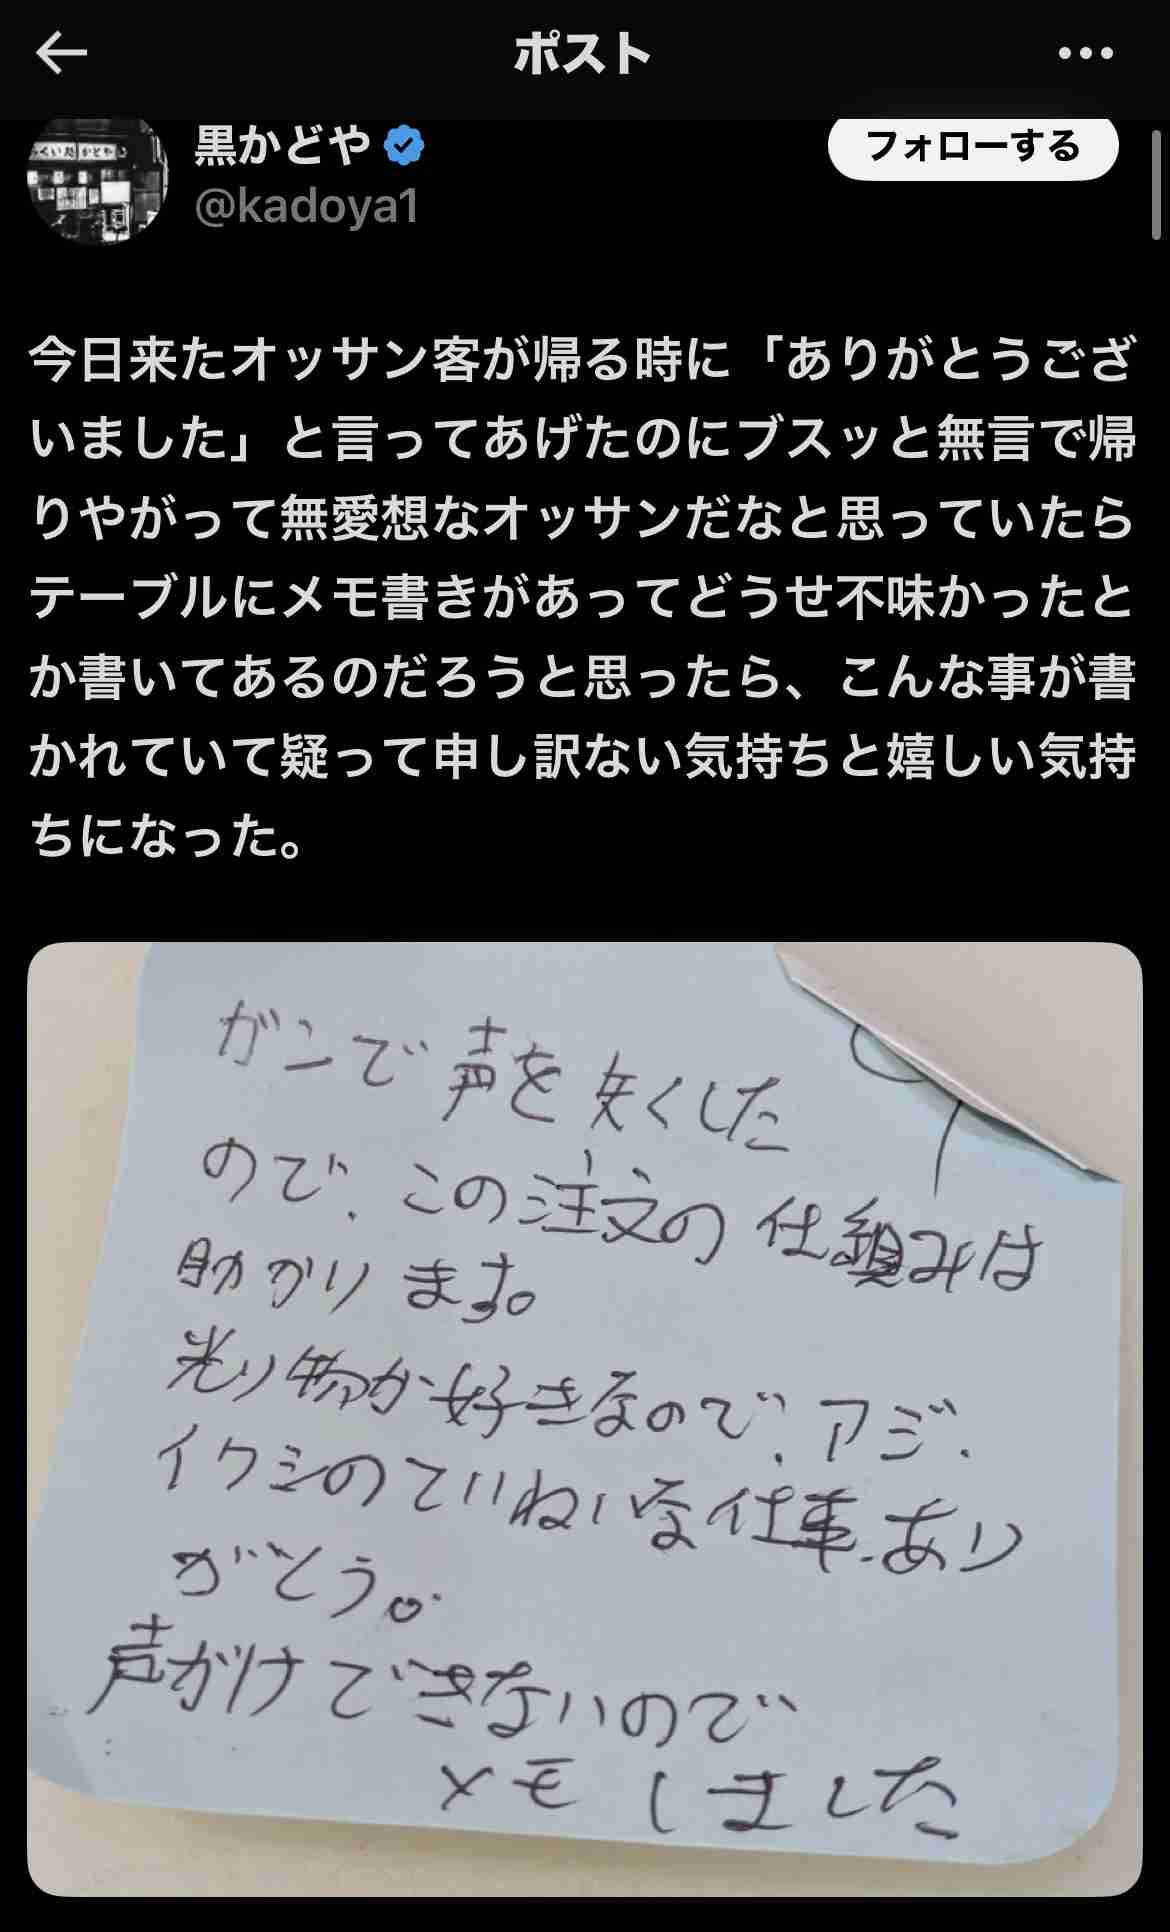 ポスト
黒かどや
@kadoya1
フォローする
今日来たオッサン客が帰る時に「ありがとうござ
いました」と言ってあげたのにブスッと無言で帰
りやがって無愛想なオッサンだなと思っていたら
テーブルにメモ書きがあってどうせ不味かったと
か書いてあるのだろうと思ったら、こんな事が書
かれていて疑って申し訳ない気持ちと嬉しい気持
ちになった。
ガンで声を失くした
ので、この注文の仕組みは
助かります。
光り物が好きなので、アジ、
イワシのていねいな仕事、あり
がとう。
声がけできないので
メモしました